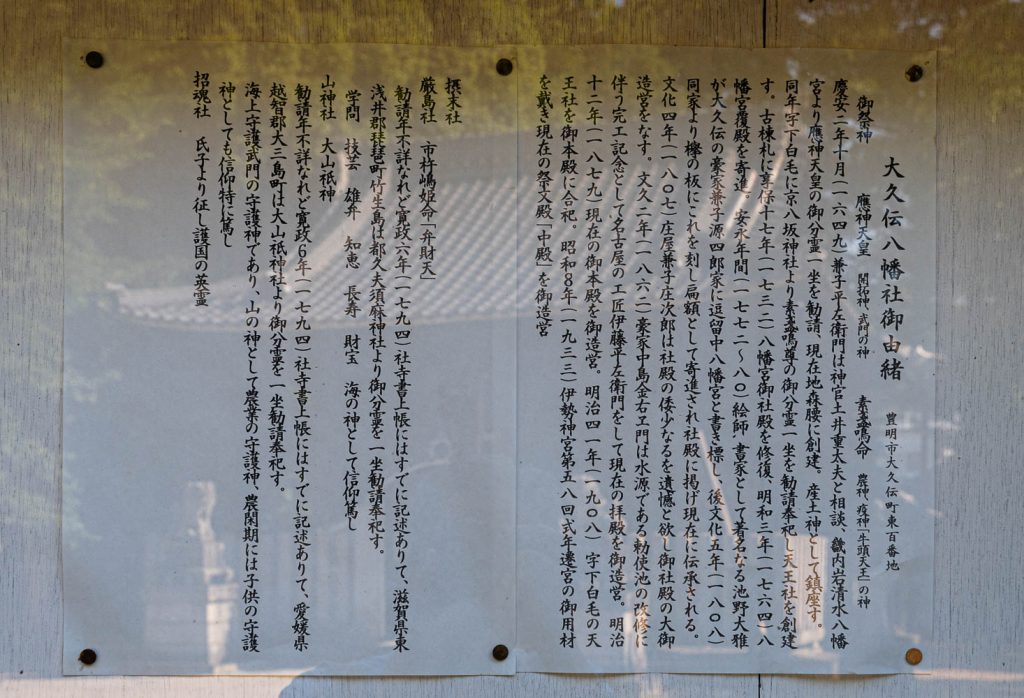 大久伝八幡社御由緒
豊明市大久伝町東百番地
御祭神 應神天皇 開拓神、武門の神 素盞鳴命 農神、疫神「牛頭天王」の神
慶安二年十月(一六四九)兼子平左衛門は神官土井重太夫と相談、畿内岩清水八幡
宮より應神天皇の御分霊一坐を勧請、現在地森腰に創建。産土神として鎮座す。
同年字下白毛に京八坂神社より素盞鳴尊の御分霊一坐を勧請奉祀し天王社を創建
す。古棟札に享保十七年(一七三二)八幡宮御社殿を修復、明和三年(一七六四)八
幡宮覆殿を寄進。安永年間(一七七二〜八〇)絵師、書家として著名なる池野大雅
が大久伝の豪家兼子源四郎家に逗留中八幡宮と書き標し、後文化五年(一八〇八)
同家より欅の板にこれを刻し扁額として寄進され社殿に掲げ現在に伝承される。
文化四年(一八〇七)庄屋兼子庄次郎は社殿の倭少なるを遺憾と欲し御社殿の大御
造営をなす。文久二年(一八六二)豪家中島金右エ門は水源である勅使池の改修に
伴う完工記念として名古屋の工匠伊藤平左衛門をして現在の拝殿を御造営。明治
十二年(一八七九)現在の御本殿を御造営。明治四一年(一九〇八)字下白毛の天
王社を御本殿に合祀。昭和8年(一九三三)伊勢神宮第五八回式年遷宮の御用材
を戴き現在の祭文殿「中殿」を御造営
摂末社
厳島社 市杵嶋姫命「弁財天」
勧請年不詳なれど寛政六年(一七九四)社寺書上帳にはすでに記述ありて、滋賀県東
浅井郡琵琶町竹生島は都久夫須麻神社より御分霊を一坐勧請奉祀す。
学問 技芸 雄弁 知恵 長寿 財宝 海の神として信仰篤し
山神社 大山祇神
勧請年不詳なれど寛政6年(一七九四)社寺書上帳にはすでに記述ありて、愛媛県
越智郡大三島町は大山祇神社より御分霊を一坐勧請奉祀す。
海上守護武門の守護神であり、山の神として農業の守護神、農閑期には子供の守護
神としても信仰特に篤し
招魂社 氏子より征し護国の英霊